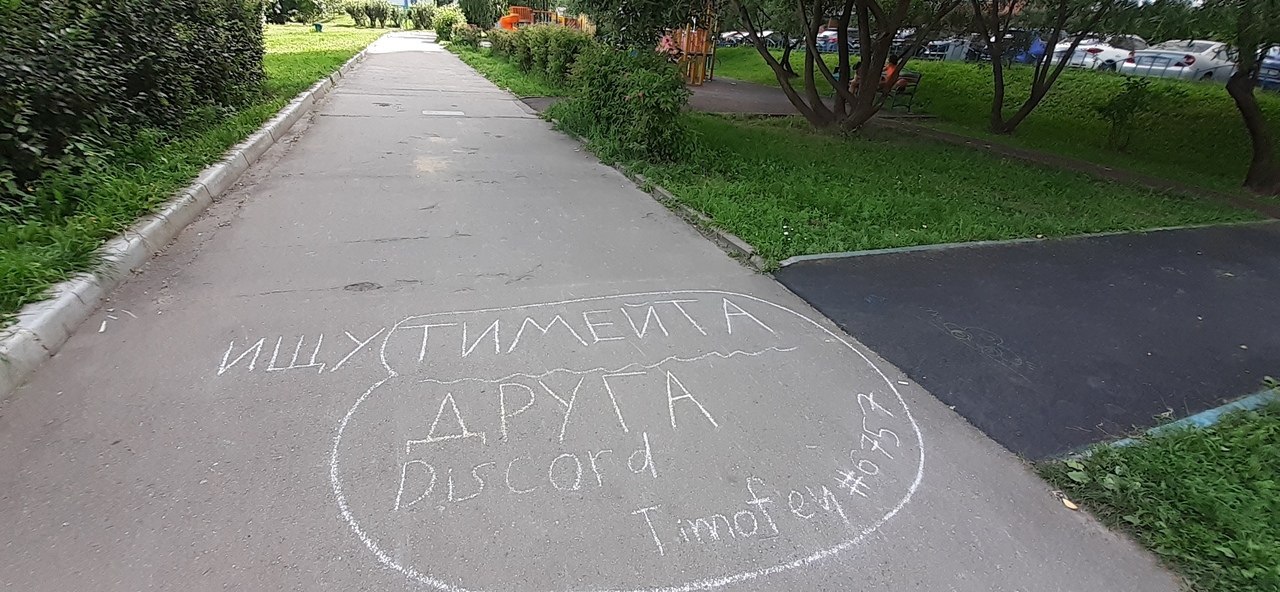 ИЩУ ТИМЕЙТА
ДРУГА
Discord
Timofey #6757